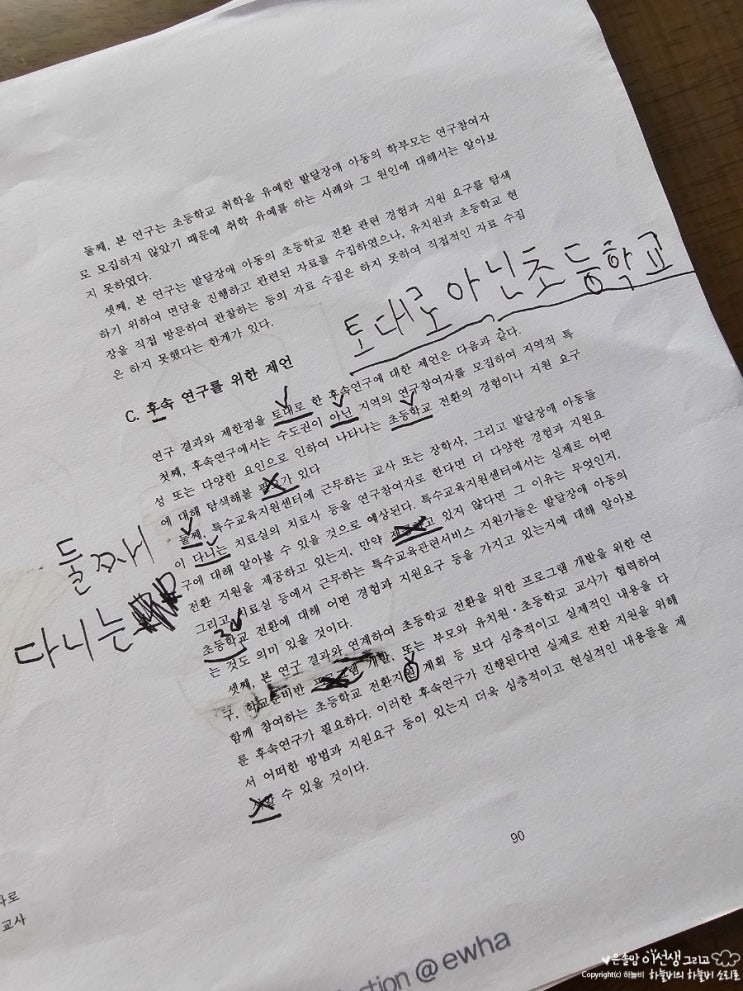 둘째, 본 연구는 초등학교 취학을 유예한 발달장애 아동의 학부모는 연구참여자
로 모집하지 않았기 때문에 취학 유예를 하는 사례와 그 원인에 대해서는 알아보
지 못하였다.
셋째, 본 연구는 발달장애 아동의 초등학교 전환 관련 경험과 지원 요구를 탐색
하기 위하여 면담을 진행하고 관련된 자료를 수집하였으나, 유치원과 초등학교 현
장을 직접 방문하여 관찰하는 등의 자료 수집은 하지 못하여 직접적인 자료 수집
은 하지 못했다는 한계가 있다.
토대로 아닌 초등학교
C. 후속 연구를 위한 제언
연구 결과와 제한점을 토대로 한 후속연구에 대한 제언은 다음과 같다.
첫째, 후속연구에서는 수도권이 아닌 지역의 연구참여자를 모집하여 지역적 특
성 또는 다양한 요인으로 인하여 나타나는 초등학교 전환의 경험이나 지원 요구
에 대해 탐색해볼 가 있다
둘째, 특수교육지원센터에 근무하는 교사 또는 장학사, 그리고 발달장애 아동들
이 다니는 치료실의 치료사 등을 연구참여자로 한다면 더 다양한 경험과 지원요
구에 대해 알아볼 수 있을 것으로 예상된다. 특수교육지원센터에서는 실제로 어떤
전환 지원을 제공하고 있는지, 만약 있지 않다면 그 이유는 무엇인지,
그리고 치료실 등에서 근무하는 특수교육관련서비스 지원가들은 발달장애 아동의
초등학교 전환에 대해 어떤 경험과 지원요구 등을 가지고 있는지에 대해 알아보
는 것도 의미 있을 것이다.
둘째
다니는
셋째, 본 연구 결과와 연계하여 초등학교 전환을 위한 프로그램 개발을 위한 연
구, 학교준비반 개발, 또는 부모와 유치원·초등학교 교사가 협력하여
함께 참여하는 초등학교 전환지원 계획 등 보다 심층적이고 실제적인 내용을 다
룬 후속연구가 필요하다. 이러한 후속연구가 진행된다면 실제로 전환 지원을 위해
서 어떠한 방법과 지원요구 등이 있는지 더욱 심층적이고 현실적인 내용들을 제
수 있을 것이다.
90
자로
교사
ction @ ewha
은솔맘 이선생 그리고
Copyright(c) 하늘비 하늘비의 하늘비 소리로